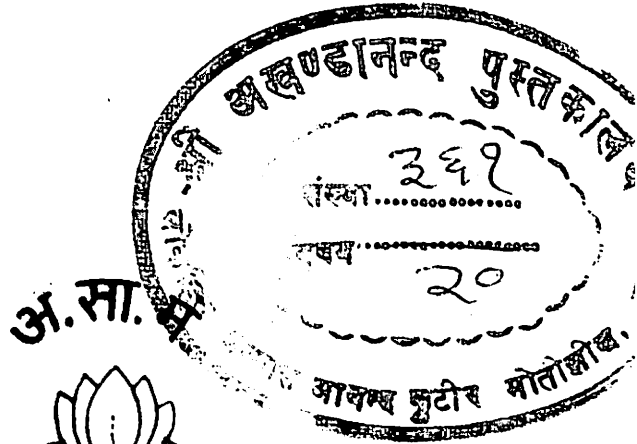 श्री अखण्डानन्द पुस्तकालय
संख्या ३६१
विषय
२०
आनन्द कुटीर मोतीझील,
अ. सा. म